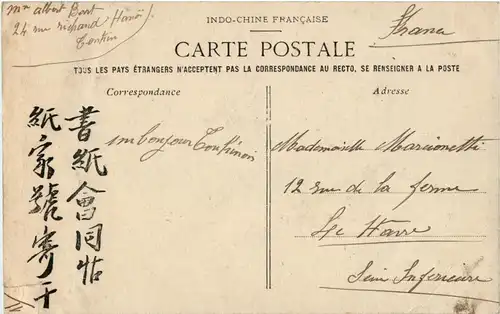 Mr albert Bort
24 rue richaud Hanoï
Tonkin
INDO-CHINE FRANÇAISE
CARTE POSTALE
TOUS LES PAYS ÉTRANGERS N'ACCEPTENT PAS LA CORRESPONDANCE AU RECTO, SE RENSEIGNER A LA POSTE
Correspondance
Adresse
un bonjour Tonkinois
Mademoiselle Marcionetti
12 rue de la ferme
Le Havre
Seine Inferieure
書紙會同帖
紙家號寄于